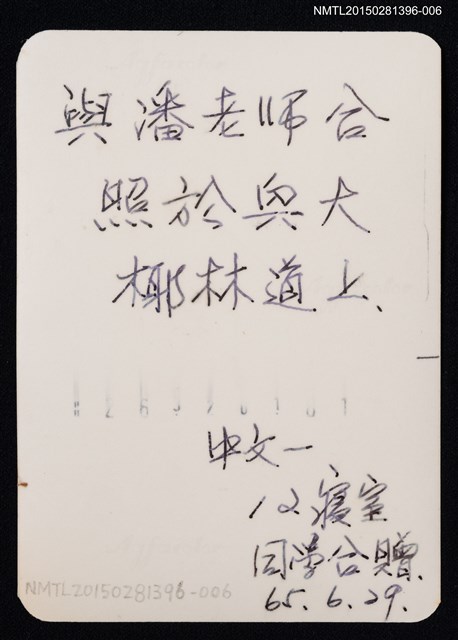 NMTL20150281396-006
與潘老師合
照於興大
椰林道上、
中文一
12寢室
同學合贈
65.6.29.
NMTL20150281396-006